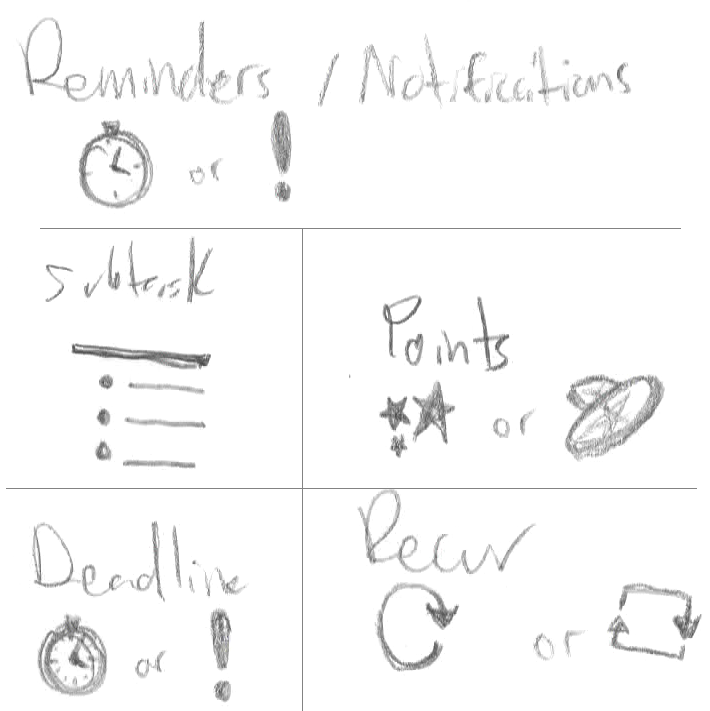 Reminders / Notifications
or !
Subtask
Points
or
Deadline
or !
Recur
or